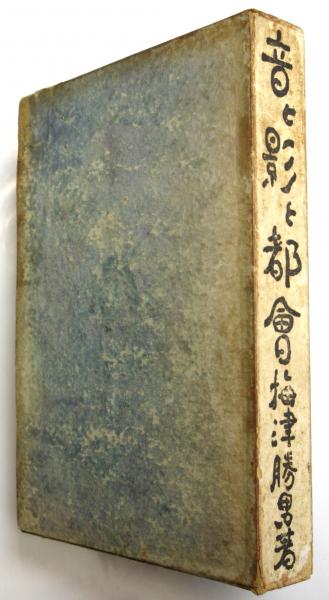 音と影と都會 梅津勝男著